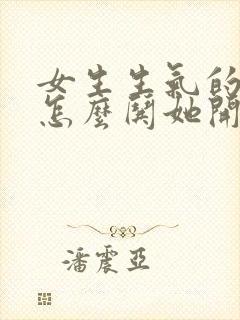 女生生氣的
怎麼鬨她開
潘震亞